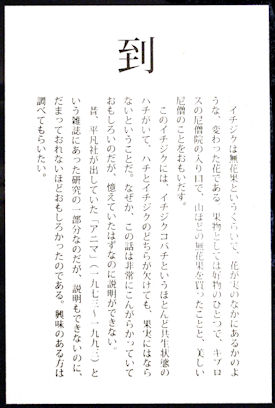 到
イチジクは無花果というくらいで、花が実のなかにあるかのよ
うな、変わった花である。果物としては好物のひとつで、キプロ
スの尼僧院の入り口で、山ほどの無花果を買ったことと、美しい
尼僧のことをおもいだす。
このイチジクには、イチジクコバチというほとんど共生状態の
ハチがいて、ハチとイチジクのどちらが欠けても、果実にはなら
ないということだ。なぜか、この話は非常にこんがらかっていて
おもしろいのだが、憶えていたはずなのに説明ができない。
昔、平凡社が出していた「アニマ」(一九七三～一九九三)と
いう雑誌にあった研究の一部分なのだが、説明もできないのに、
だまっておれないほどおもしろかったのである。興味のある方は
調べてもらいたい。